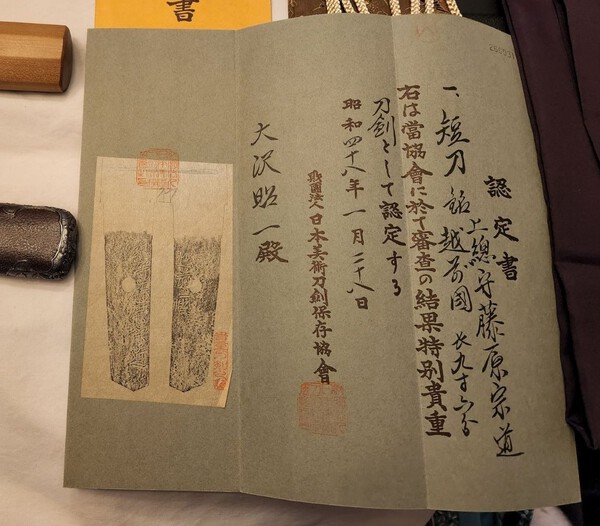 書
認定書
一、短刀 銘 越前國
上總守藤原宗道
長九寸六分
右は當協會に於て審査の結果特別貴重
刀劍として認定する
昭和四十八年一月二十八日
財團法人日本美術刀劍保存協會
大沢昭一殿